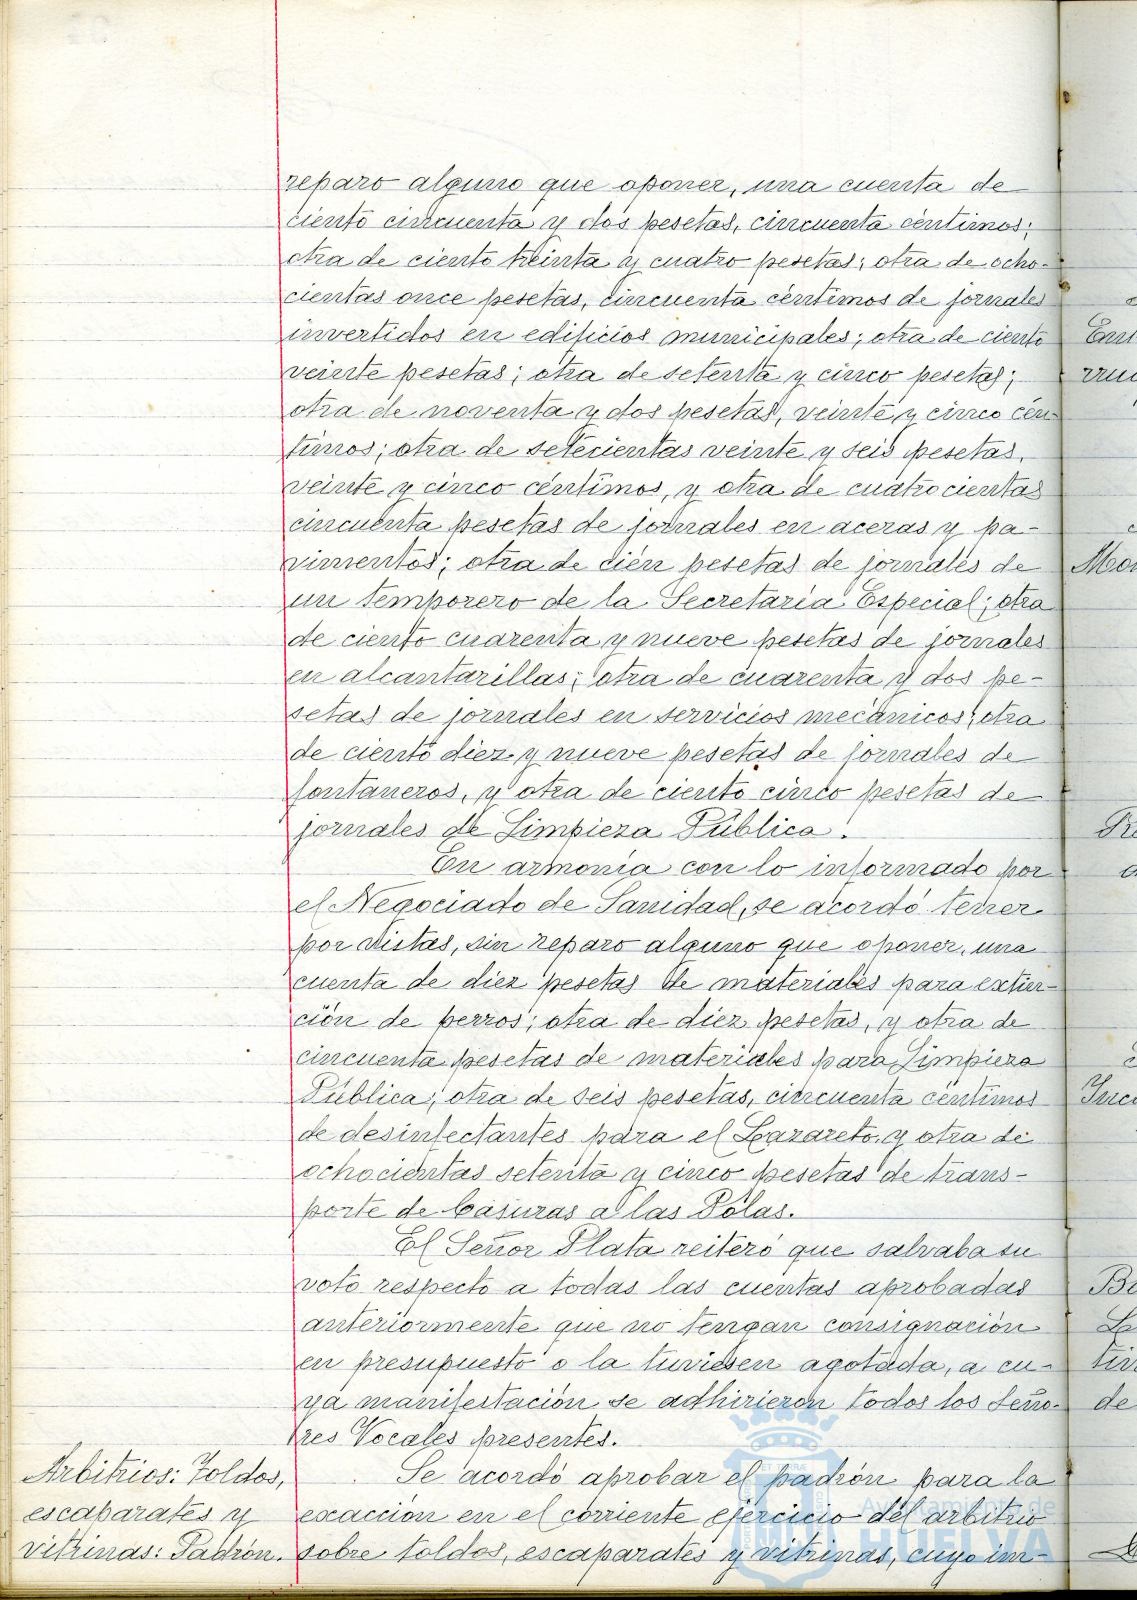 reparo alguno que oponer, una cuenta de
ciento cincuenta y dos pesetas, cincuenta céntimos;
otra de ciento treinta y cuatro pesetas; otra de ocho-
cientas once pesetas, cincuenta céntimos de jornales
invertidos en edificios municipales; otra de ciento
veinte pesetas; otra de setenta y cinco pesetas;
otra de noventa y dos pesetas, veinte y cinco cén-
timos; otra de setecientas veinte y seis pesetas,
veinte y cinco céntimos, y otra de cuatrocientas
cincuenta pesetas de jornales en aceras y pa-
vimentos; otra de cien pesetas de jornales de
un temporero de la Secretaria Especial; otra
de ciento cuarenta y nueve pesetas de jornales
en alcantarillas; otra de cuarenta y dos pe-
setas de jornales en servicios mecánicos; otra
de ciento diez y nueve pesetas de jornales de
fontaneros, y otra de ciento cinco pesetas de
jornales de Limpieza Pública.
En armonía con lo informado por
el Negociado de Sanidad, se acordó tener
por vistas, sin reparo alguno que oponer, una
cuenta de diez pesetas de materiales para extin-
ción de perros; otra de diez pesetas, y otra de
cincuenta pesetas de materiales para Limpieza
Pública; otra de seis pesetas, cincuenta céntimos
de desinfectantes para el Lazareto, y otra de
ochocientas setenta y cinco pesetas de trans-
porte de basuras a las Pólas.
El Señor Plata reiteró que salvaba su
voto respecto a todas las cuentas aprobadas
anteriormente que no tengan consignación
en presupuesto o la tuviesen agotada, a cu-
ya manifestación se adhirieron todos los Seño-
res Vocales presentes.
Arbitrios: Toldos,
escaparates y
vitrinas: Padrón.
Se acordó aprobar el padrón para la
exacción en el corriente ejercicio del arbitrio
sobre toldos, escaparates y vitrinas, cuyo im-
Ayuntamiento de
HUELVA